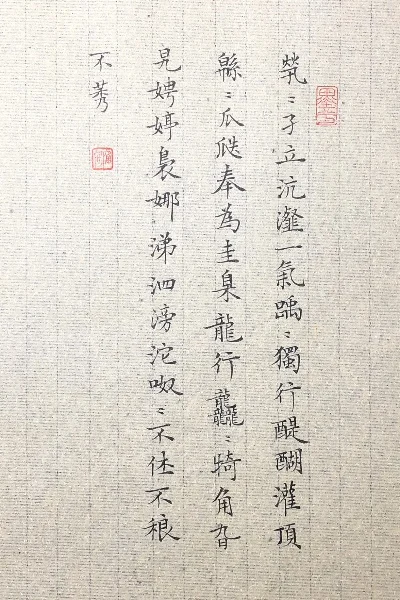 煢〻孑立沆瀣一氣踽〻獨行醍醐灌頂
緜〻瓜瓞奉為圭臬龍行龘〻犄角旮
旯娉婷裊娜涕泗滂沱呶〻不休不稂
不莠